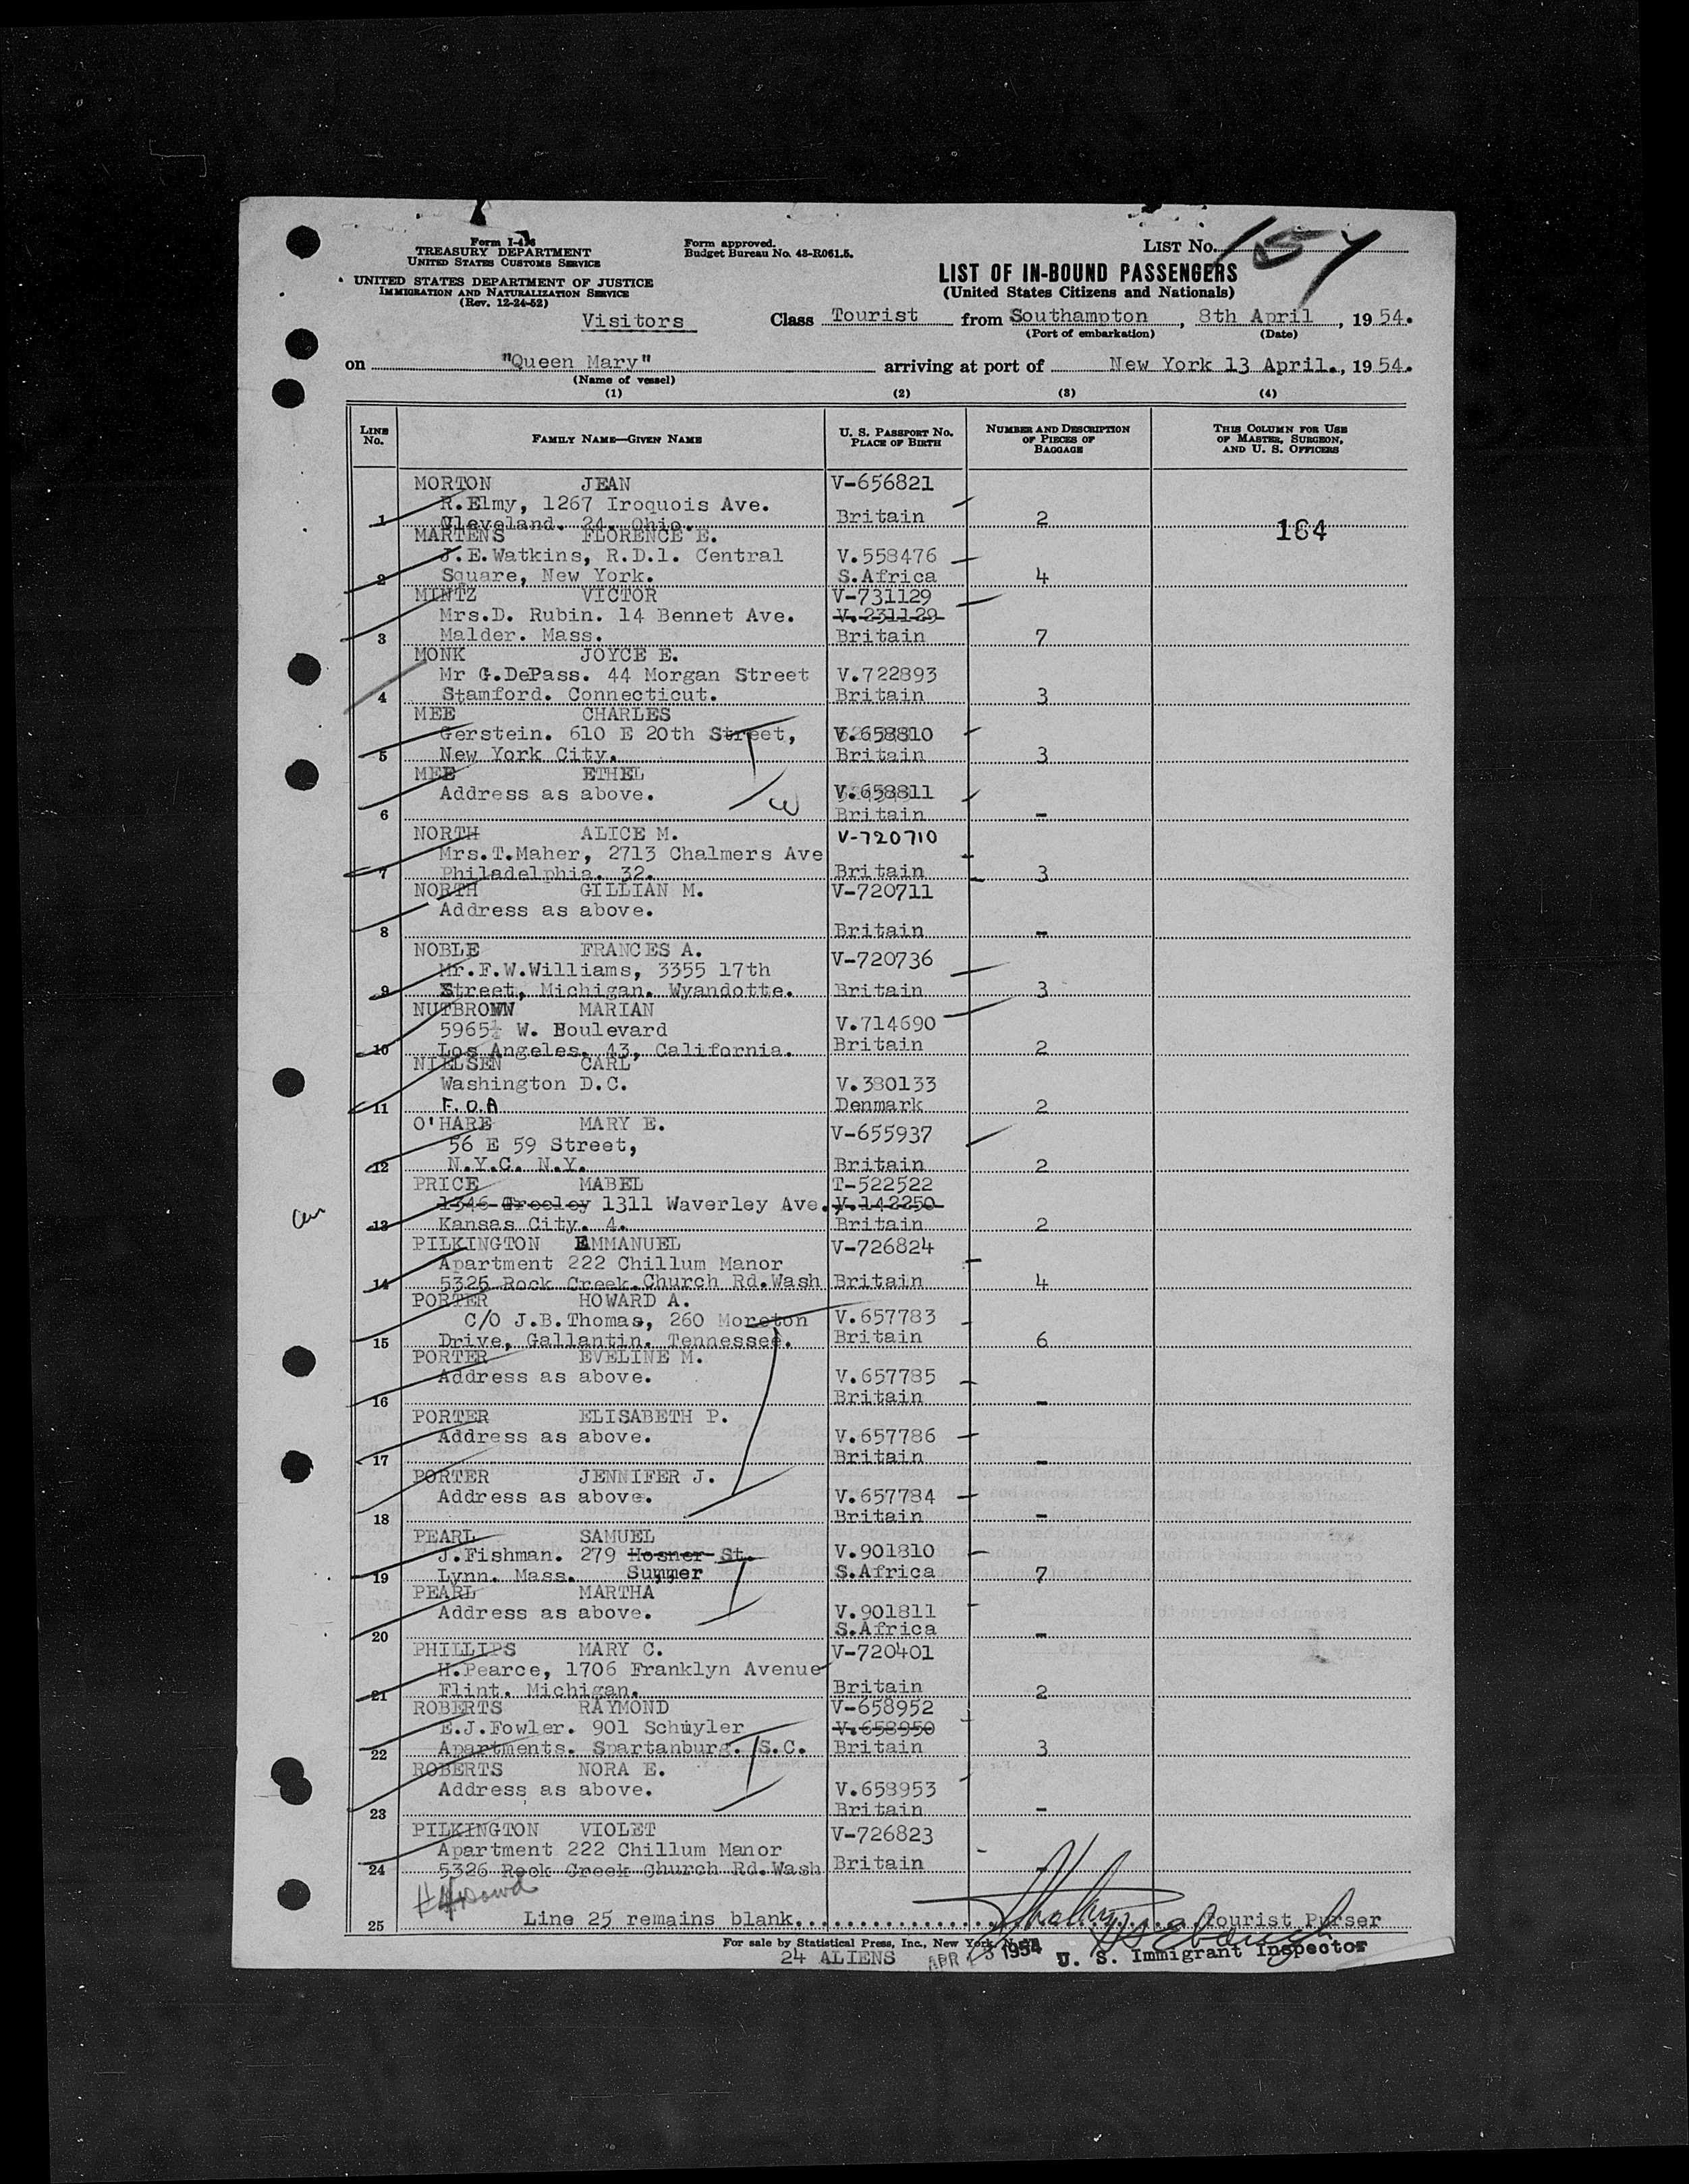 Form I-416
TREASURY DEPARTMENT
UNITED STATES CUSTOMS SERVICE
UNITED STATES DEPARTMENT OF JUSTICE
IMMIGRATION AND NATURALIZATION SERVICE
(Rev. 12-24-52)
Form approved.
Budget Bureau No. 43-R061.5.
LIST No. 157
LIST OF IN-BOUND PASSENGERS
(United States Citizens and Nationals)
Visitors Class Tourist from Southampton, 8th April, 1954.
(Port of embarkation) (Date)
on "Queen Mary" arriving at port of New York 13 April., 1954.
(Name of vessel)
(1) (2) (3) (4)
LINE No. FAMILY NAME—GIVEN NAME U. S. PASSPORT No. PLACE OF BIRTH NUMBER AND DESCRIPTION OF PIECES OF BAGGAGE THIS COLUMN FOR USE OF MASTER, SURGEON, AND U. S. OFFICERS
MORTON JEAN V-656821
R.Elmy, 1267 Iroquois Ave.
1 Cleveland. 24. Ohio. Britain 2 164
MARTENS FLORENCE E.
J.E.Watkins, R.D.1. Central V.558476
2 Square, New York. S.Africa 4
MINTZ VICTOR V-731129
Mrs.D. Rubin. 14 Bennet Ave. V.231129
3 Malder. Mass. Britain 7
MONK JOYCE E.
Mr G.DePass. 44 Morgan Street V.722893
4 Stamford. Connecticut. Britain 3
MEE CHARLES
Gerstein. 610 E 20th Street, V.658810
5 New York City. Britain 3
MEE ETHEL
Address as above. V.658811
6 Britain -
NORTH ALICE M. V-720710
Mrs.T.Maher, 2713 Chalmers Ave
7 Philadelphia. 32. Britain 3
NORTH GILLIAN M. V-720711
Address as above.
8 Britain -
NOBLE FRANCES A. V-720736
Mr.F.W.Williams, 3355 17th
9 Street, Michigan. Wyandotte. Britain 3
NUTBROWN MARIAN
5965½ W. Boulevard V.714690
10 Los Angeles. 43, California. Britain 2
NIELSEN CARL
Washington D.C. V.380133
11 F.O.A Denmark 2
O'HARE MARY E. V-655937
56 E 59 Street,
12 N.Y.C. N.Y. Britain 2
PRICE MABEL T-522522
1346 Greeley 1311 Waverley Ave. V.142250
13 Kansas City. 4. Britain 2
PILKINGTON EMMANUEL V-726824
Apartment 222 Chillum Manor
14 5326 Rock Creek.Church Rd.Wash Britain 4
PORTER HOWARD A.
C/O J.B.Thomas, 260 Moreton V.657783
15 Drive, Gallantin. Tennessee. Britain 6
PORTER EVELINE M.
Address as above. V.657785
16 Britain -
PORTER ELISABETH P.
Address as above. V.657786
17 Britain -
PORTER JENNIFER J.
Address as above. V.657784
18 Britain -
PEARL SAMUEL
J.Fishman. 279 Hosner St. V.901810
19 Lynn. Mass. Summer S.Africa 7
PEARL MARTHA
Address as above. V.901811
20 S.Africa -
PHILLIPS MARY C. V-720401
H.Pearce, 1706 Franklyn Avenue
21 Flint. Michigan. Britain 2
ROBERTS RAYMOND V-658952
E.J.Fowler. 901 Schuyler V.658950
22 Apartments. Spartanburg. S.C. Britain 3
ROBERTS NORA E.
Address as above. V.658953
23 Britain -
PILKINGTON VIOLET V-726823
Apartment 222 Chillum Manor
24 5326 Rock Creek Church Rd.Wash Britain -
25 Line 25 remains blank. Tourist Purser
For sale by Statistical Press, Inc., New York, N. Y.
24 ALIENS APR 13 1954 U. S. Immigrant Inspector